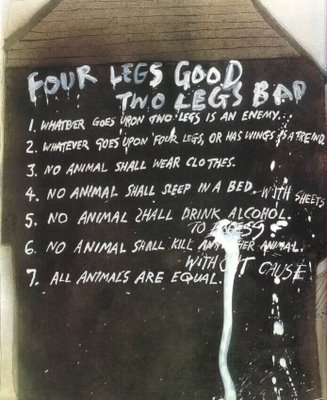 FOUR LEGS GOOD
TWO LEGS BAD
1. WHATEVER GOES UPON TWO LEGS IS AN ENEMY.
2. WHATEVER GOES UPON FOUR LEGS, OR HAS WINGS IS A FRIEND.
3. NO ANIMAL SHALL WEAR CLOTHES.
4. NO ANIMAL SHALL SLEEP IN A BED. WITH SHEETS
5. NO ANIMAL SHALL DRINK ALCOHOL.
TO EXCESS
6. NO ANIMAL SHALL KILL ANOTHER ANIMAL.
WITHOUT CAUSE
7. ALL ANIMALS ARE EQUAL.